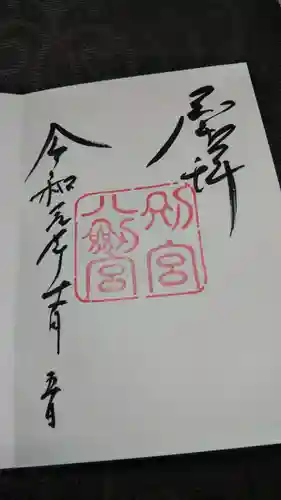 奉拝
別宮
八剣宮
令和元年十一月五日